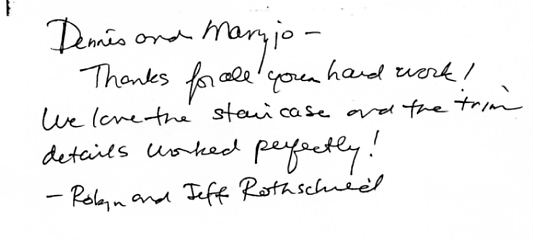 Dennis and Maryjo –
Thanks for all your hard work!
We love the staircase and the trim
details worked perfectly!
– Robyn and Jeff Rothschild